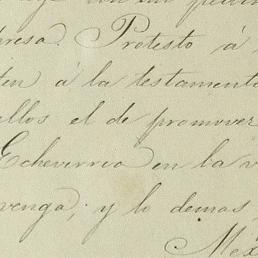 presa. Protesto á
ten á la testament
ellos el de promover
Echeverria en la v
venga; y lo demas
Méx